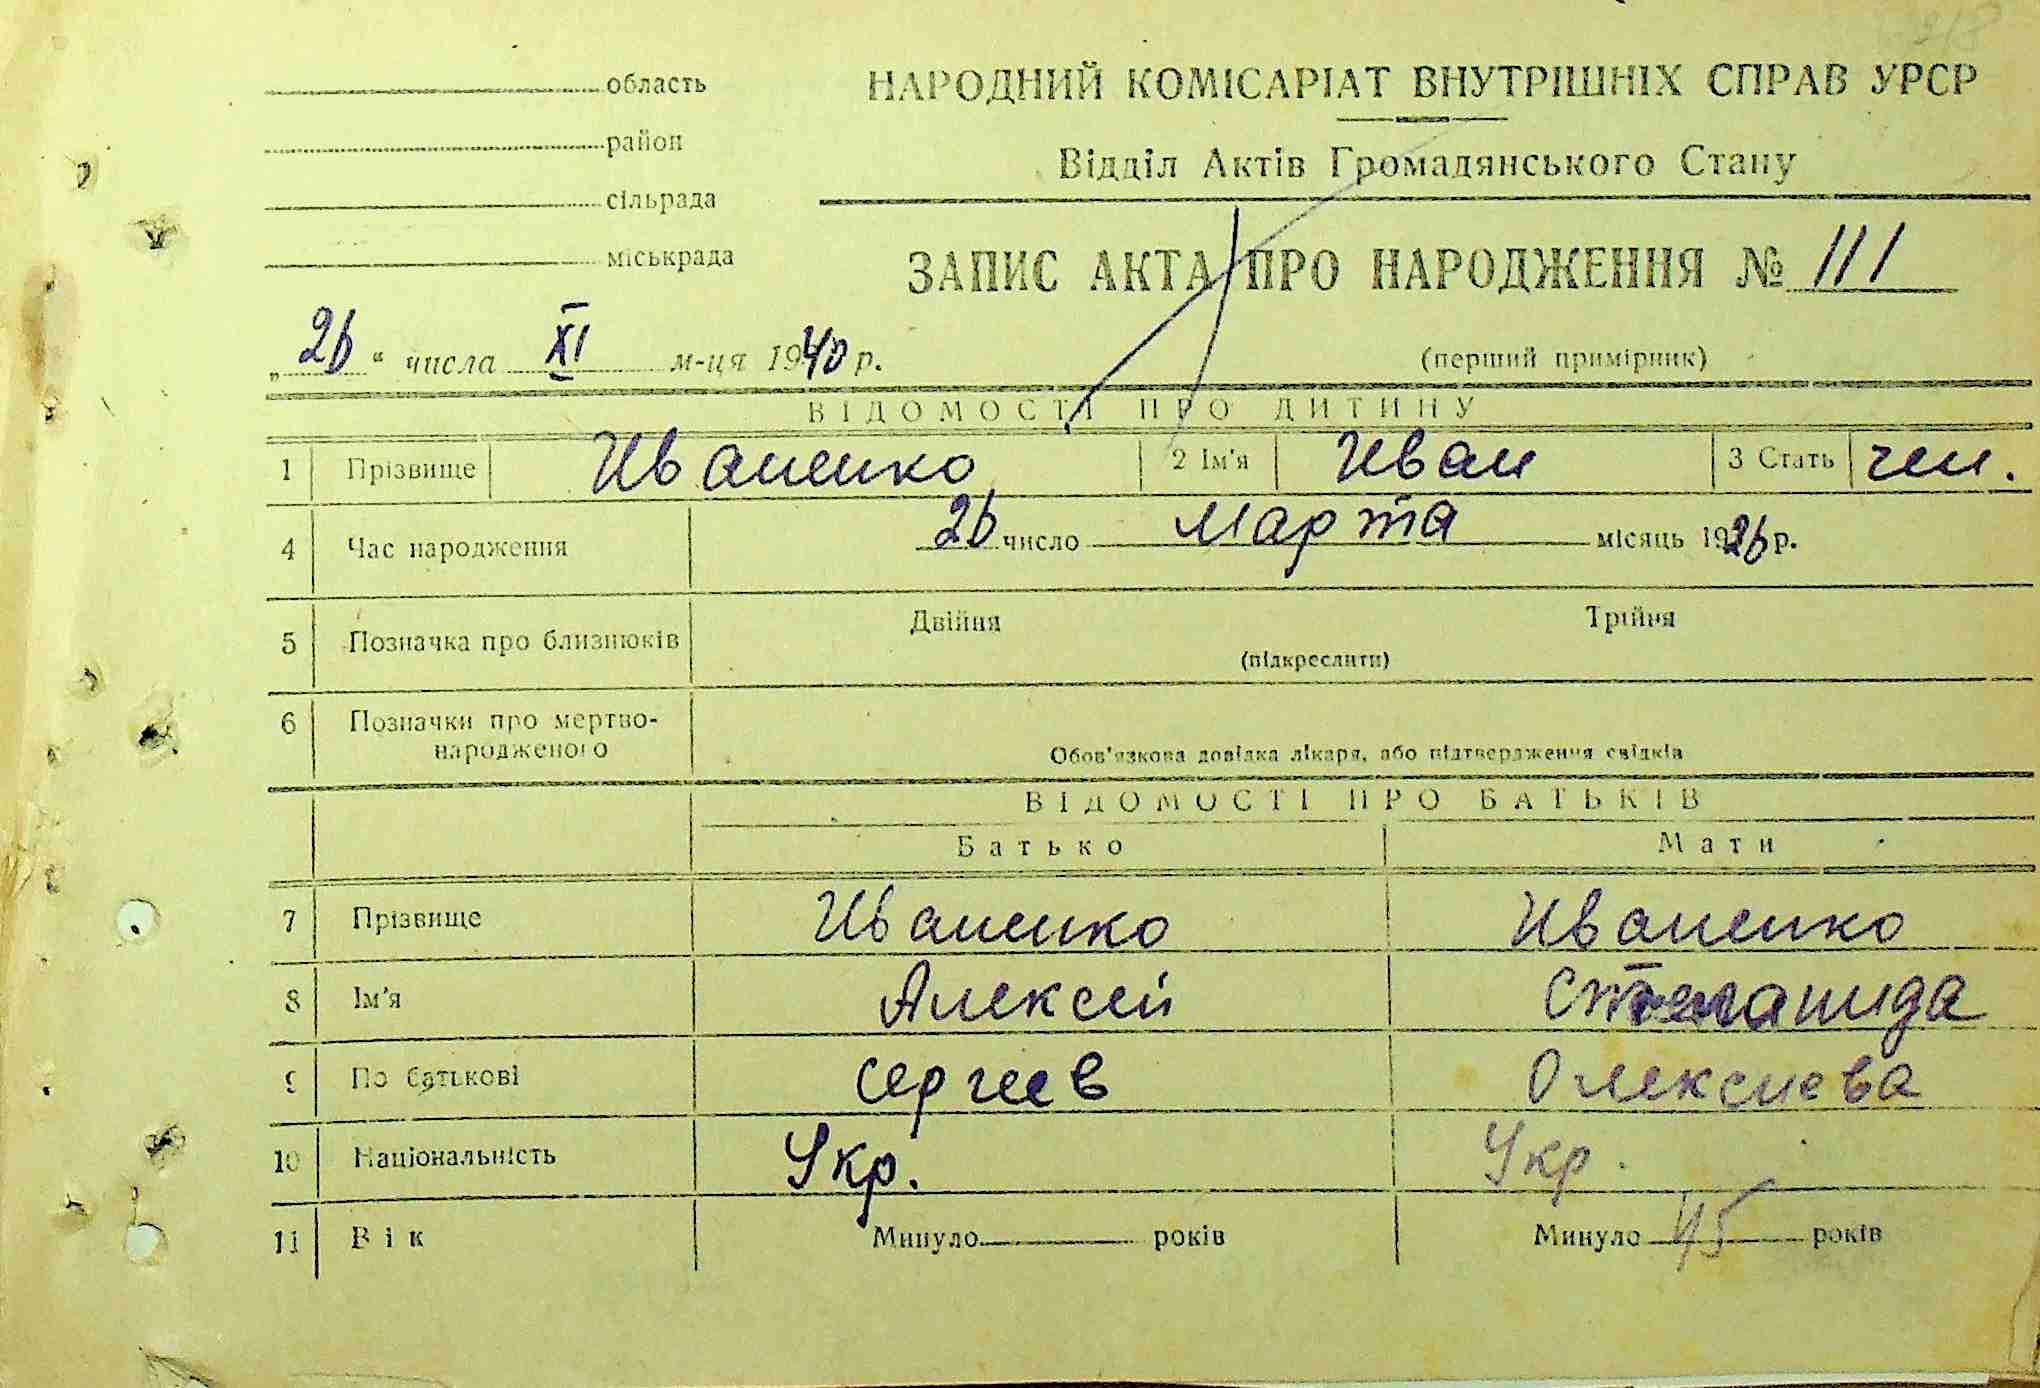 область
район
сільрада
міськрада
НАРОДНИЙ КОМІСАРІАТ ВНУТРІШНІХ СПРАВ УРСР
Відділ Актів Громадянського Стану
ЗАПИС АКТА ПРО НАРОДЖЕННЯ № 111
„26“ числа XI м-ця 1940 р.
(перший примірник)
ВІДОМОСТІ ПРО ДИТИНУ
1 Прізвище Иваненко 2 Ім'я Иван 3 Стать чел.
4 Час народження 26 число Марта місяць 1926 р.
5 Позначка про близнюків Двійня Трійня
(підкреслити)
6 Позначки про мертво-
народженого
Обов'язкова довідка лікаря, або підтвердження свідків
ВІДОМОСТІ ПРО БАТЬКІВ
Батько Мати
7 Прізвище Иваненко Иваненко
8 Ім'я Алексей Степанида
9 По батькові Сергеев Олексиева
10 Національність Укр. Укр.
11 Вік Минуло років Минуло 45 років